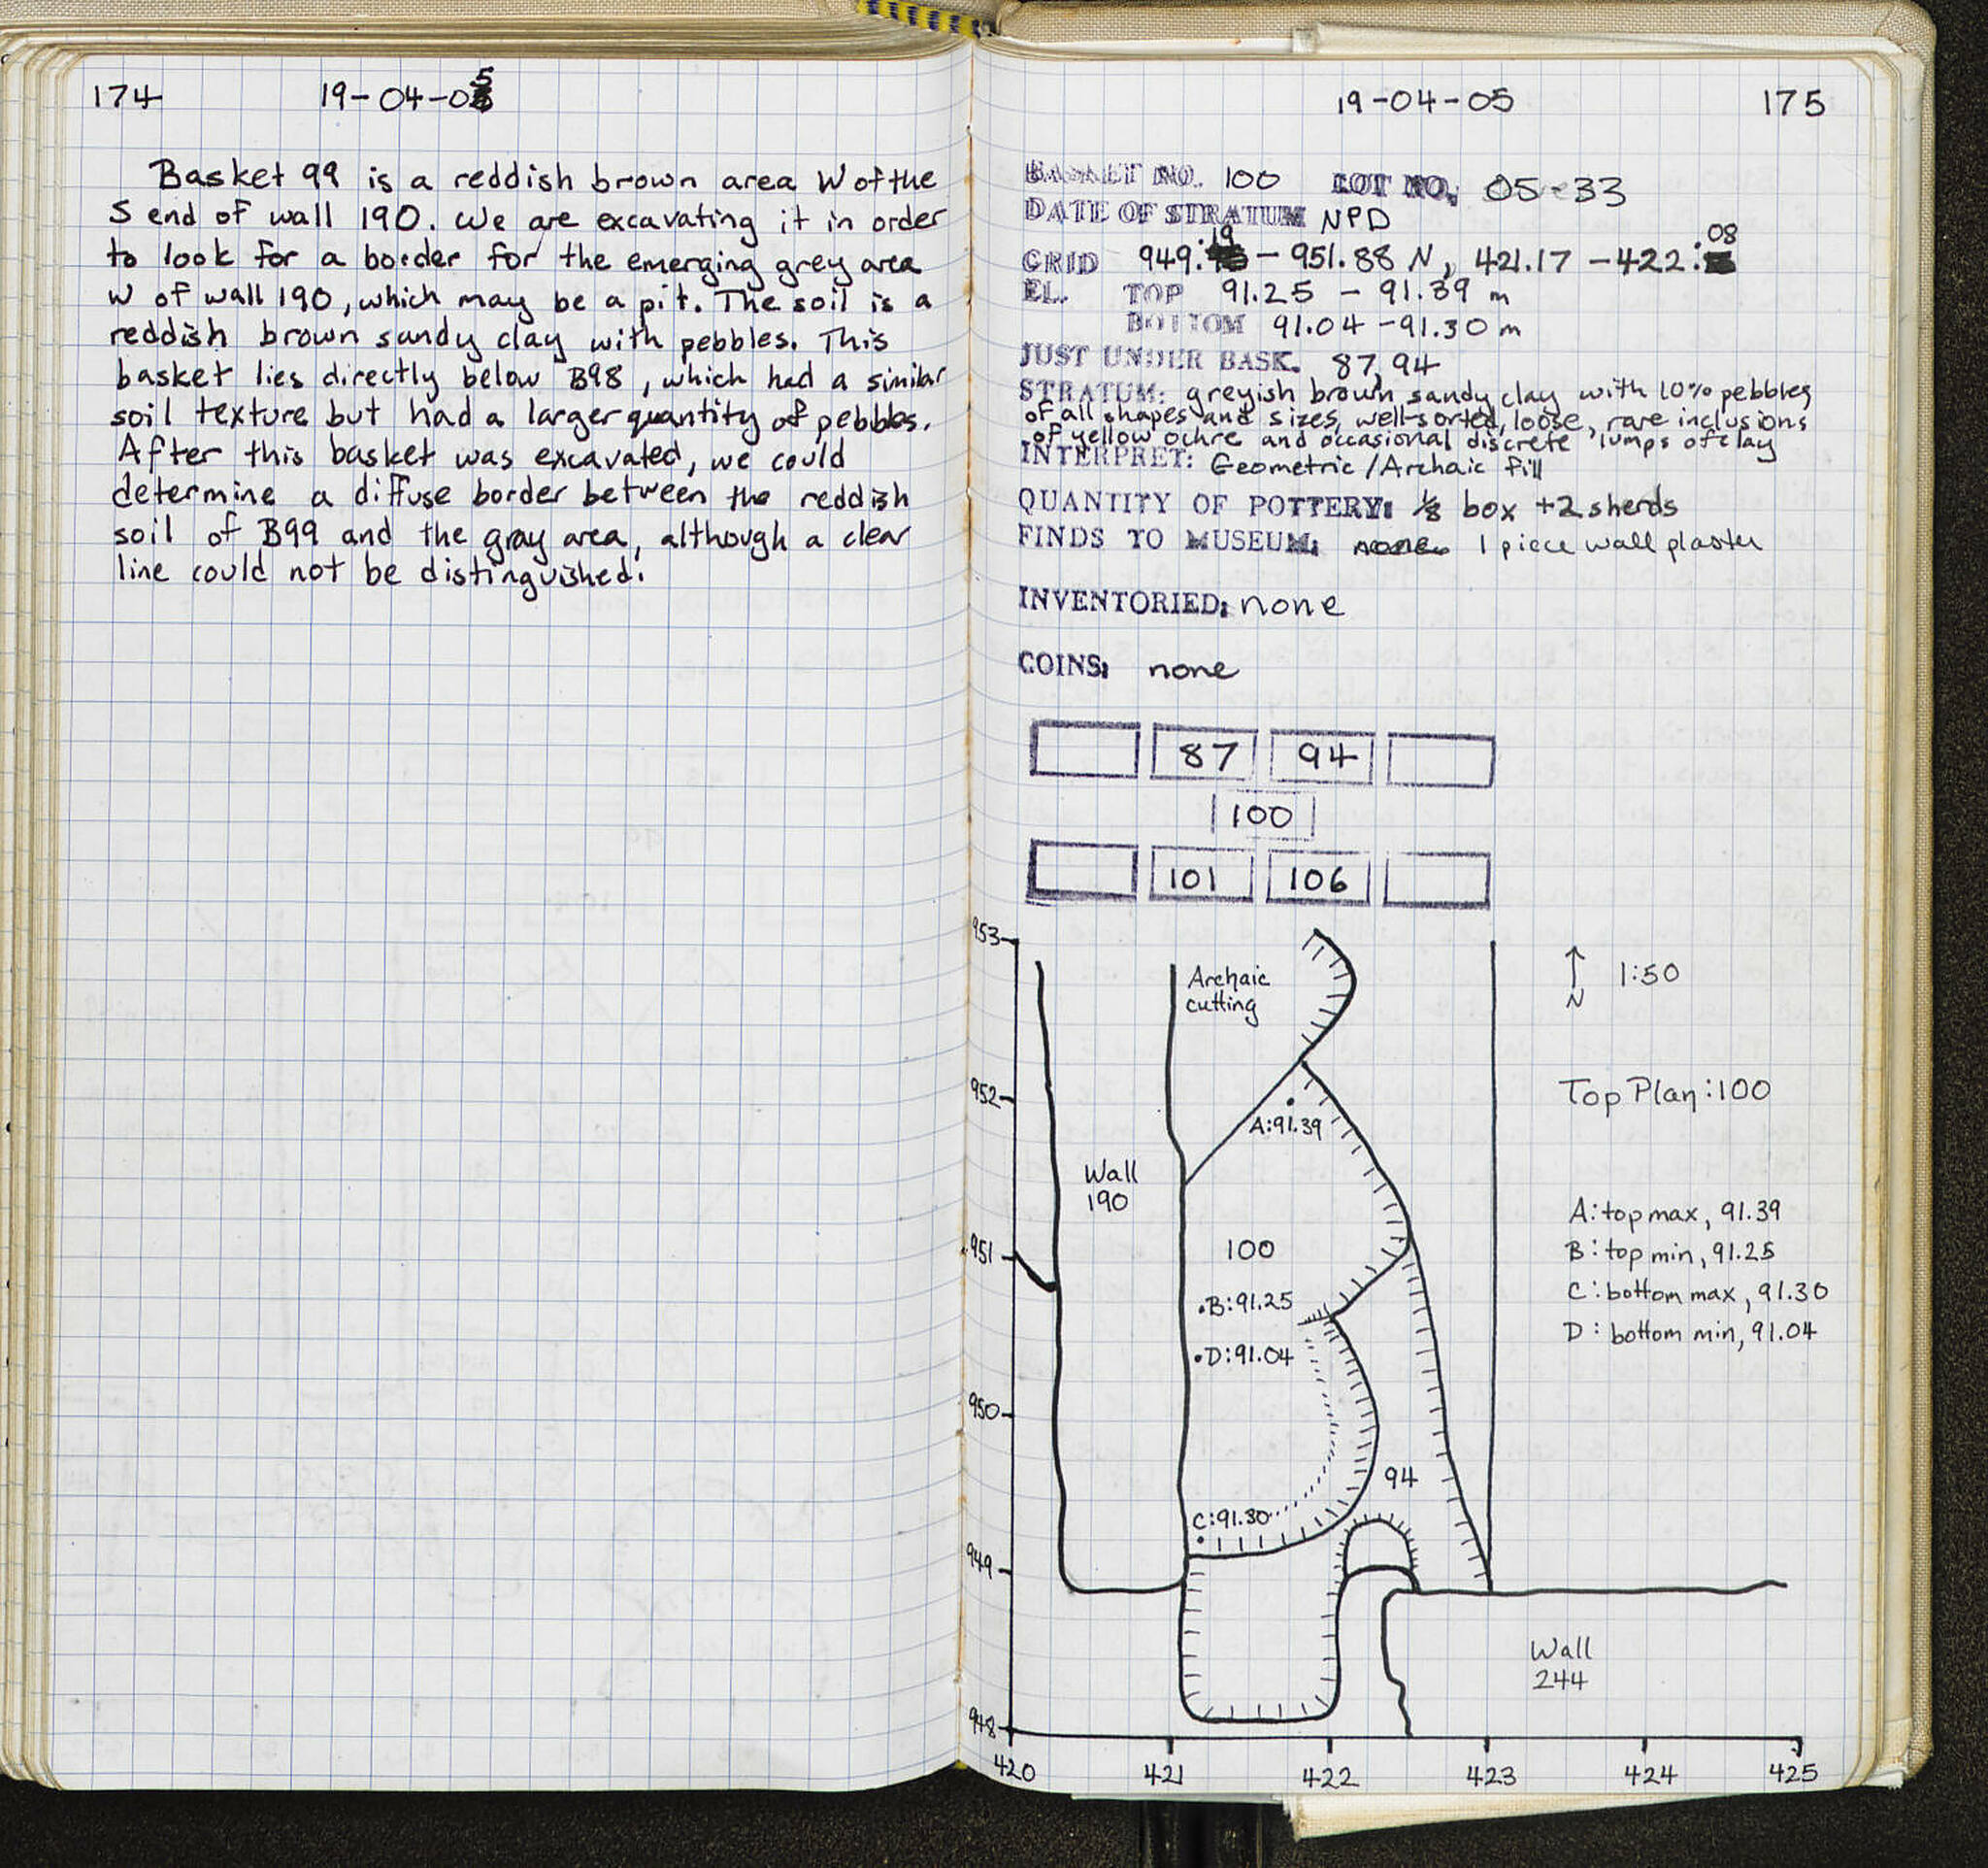 174 19-04-05
Basket 99 is a reddish brown area W of the
S end of wall 190. We are excavating it in order
to look for a border for the emerging grey area
W of wall 190, which may be a pit. The soil is a
reddish brown sandy clay with pebbles. This
basket lies directly below B98, which had a similar
soil texture but had a larger quantity of pebbles.
After this basket was excavated, we could
determine a diffuse border between the reddish
soil of B99 and the gray area, although a clear
line could not be distinguished.
19-04-05 175
BASKET NO. 100 LOT NO. 05-33
DATE OF STRATUM NPD
GRID 949.19 - 951.88 N, 421.17 - 422.08
EL. TOP 91.25 - 91.39 m
BOTTOM 91.04 - 91.30 m
JUST UNDER BASK. 87, 94
STRATUM: greyish brown sandy clay with 10% pebbles
of all shapes and sizes, well-sorted, loose, rare inclusions
of yellow ochre and occasional discrete lumps of clay
INTERPRET: Geometric/Archaic fill
QUANTITY OF POTTERY: 1/8 box + 2 sherds
FINDS TO MUSEUM: none 1 piece wall plaster
INVENTORIED: none
COINS: none
87 94
100
101 106
953
Archaic
cutting
N
1:50
952
Top Plan: 100
A: 91.39
Wall
190
A: top max, 91.39
951
100
B: top min, 91.25
B: 91.25
C: bottom max, 91.30
D: 91.04
D: bottom min, 91.04
950
94
C: 91.30
949
Wall
244
948
420 421 422 423 424 425